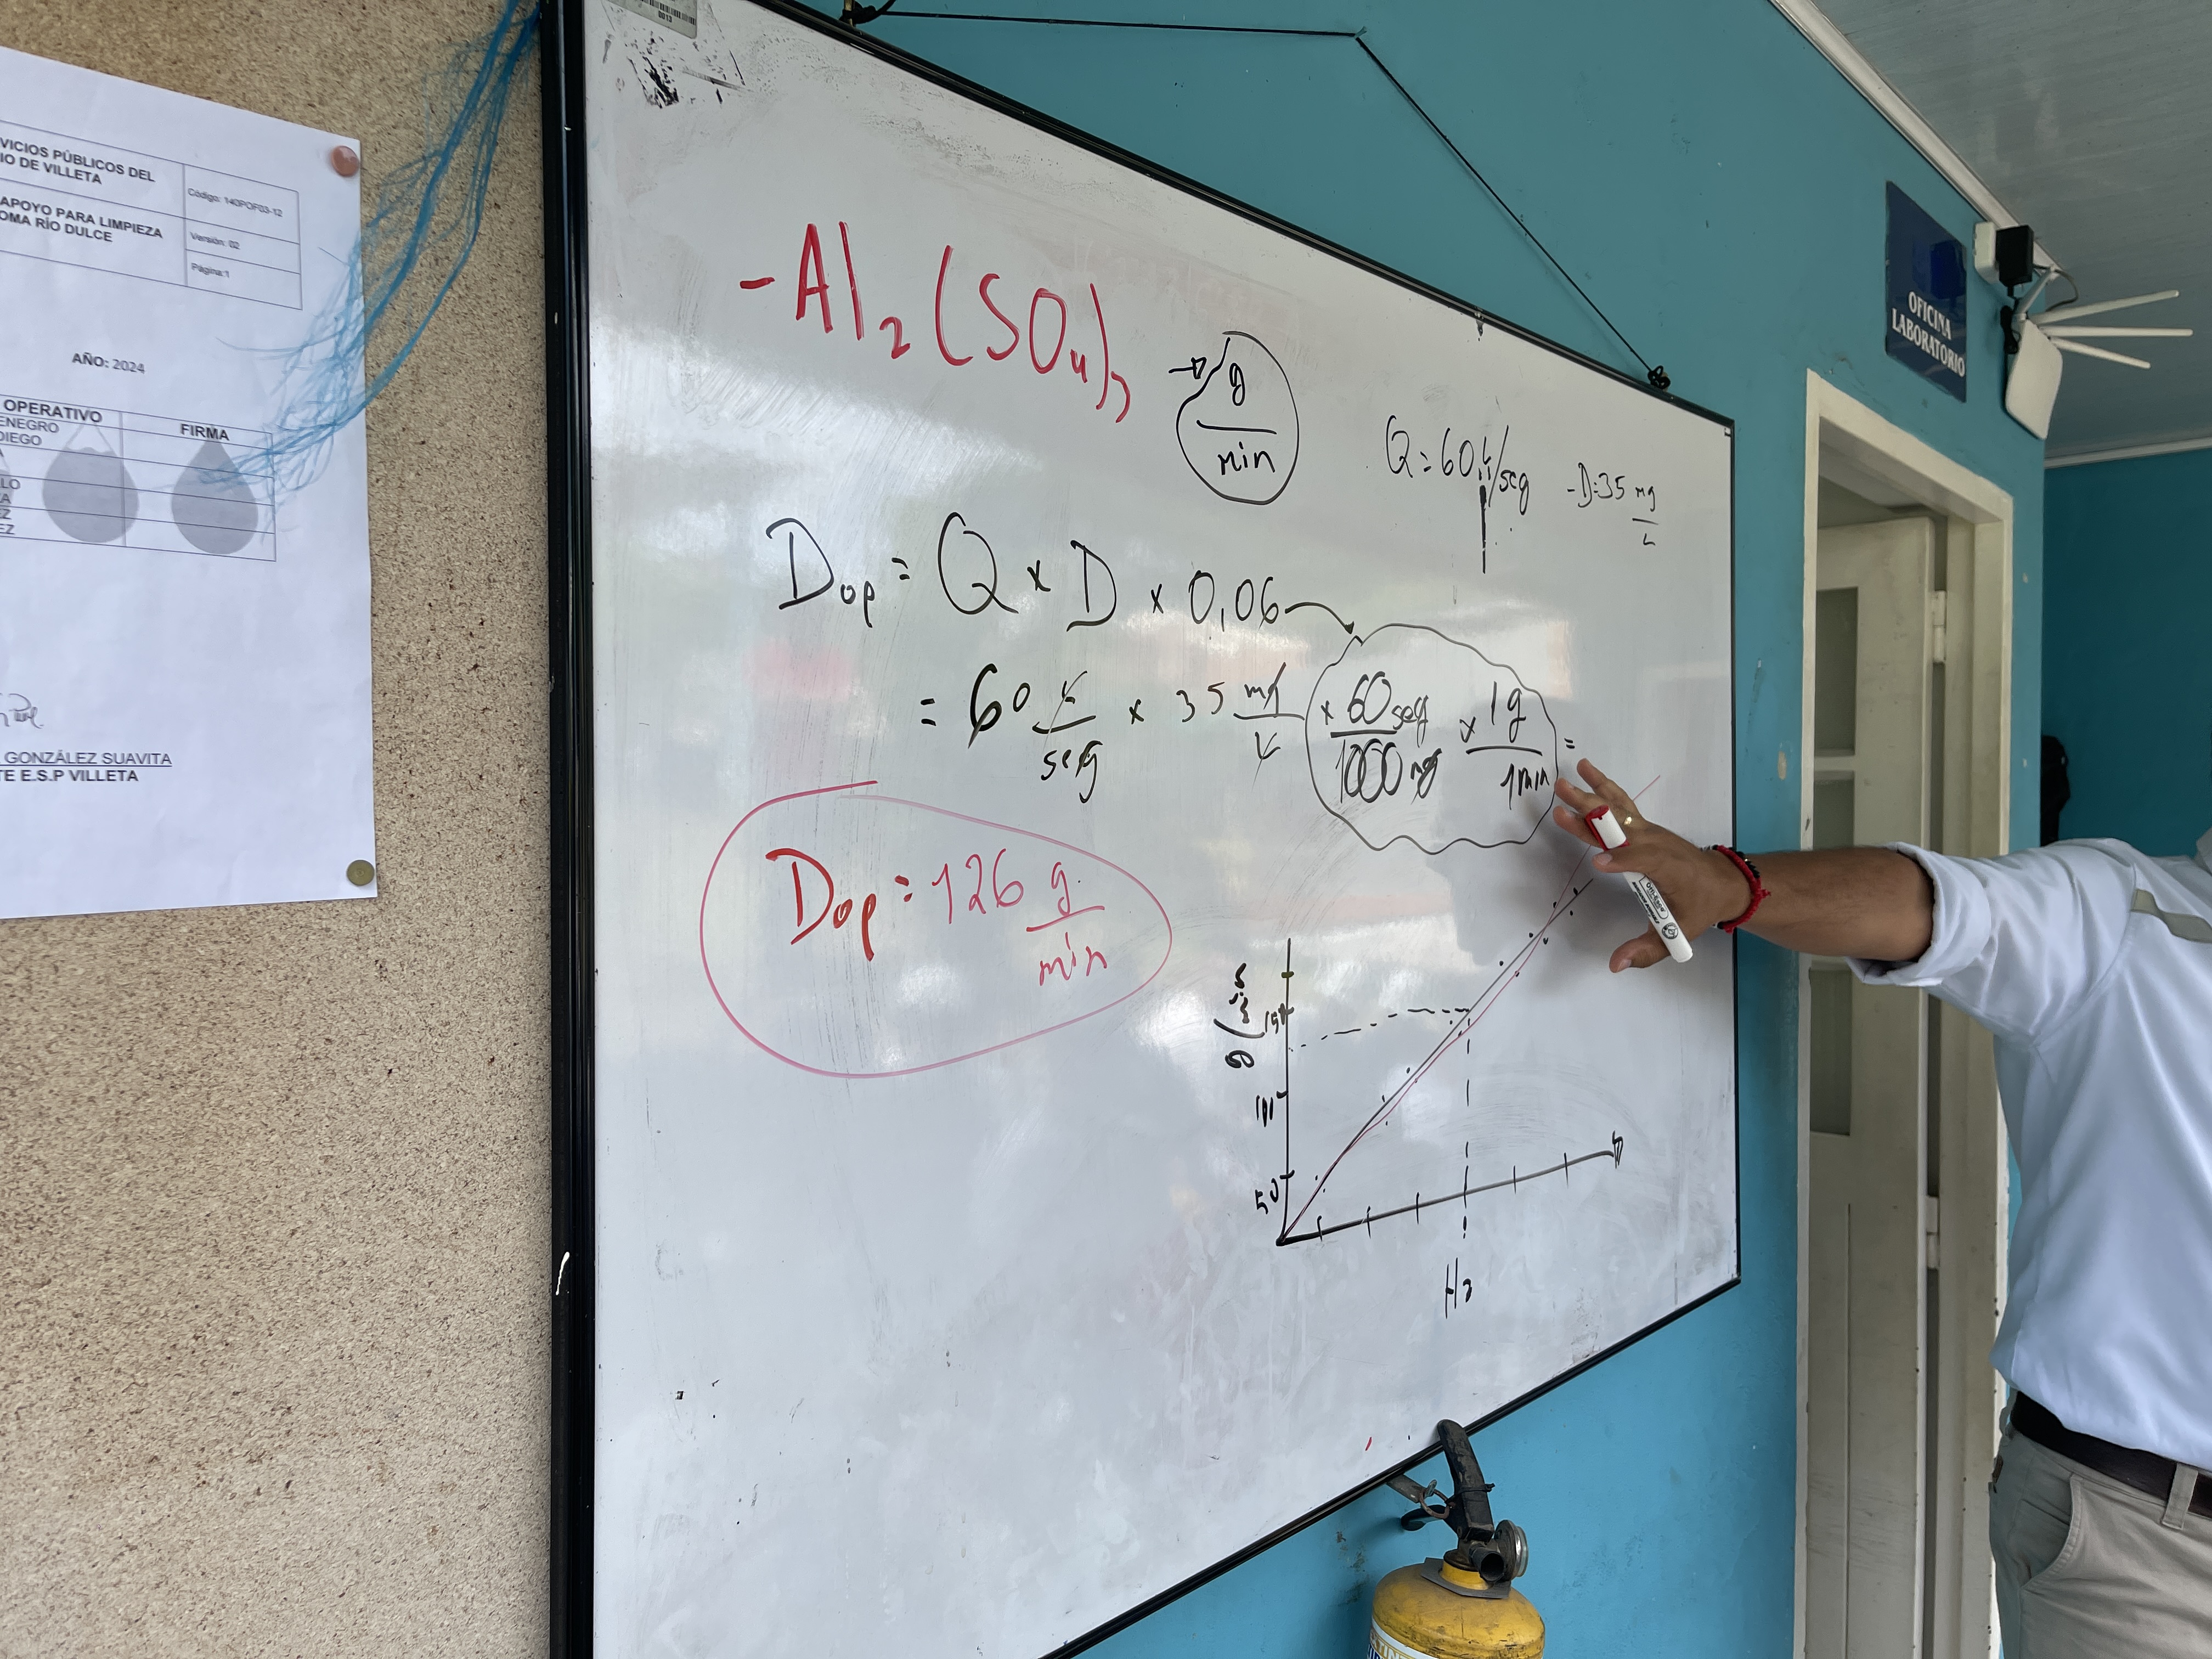 VICIOS PÚBLICOS DEL
IO DE VILLETA
Código: 140POF03-12
APOYO PARA LIMPIEZA
OMA RÍO DULCE
Versión: 02
Página:1
AÑO: 2024
OPERATIVO
FIRMA
ENEGRO
DIEGO
LO
A
EZ
GONZÁLEZ SUAVITA
TE E.S.P VILLETA
- Al2(SO4)3
g/min
Q = 60 L/seg
- D=35 mg/L
Dop = Q x D x 0,06
= 60 L/seg x 35 mg/L x 60 seg/1000 mg x 1g/1min =
Dop = 126 g/min
g/min
150
100
50
H2
OFICINA
LABORATORIO